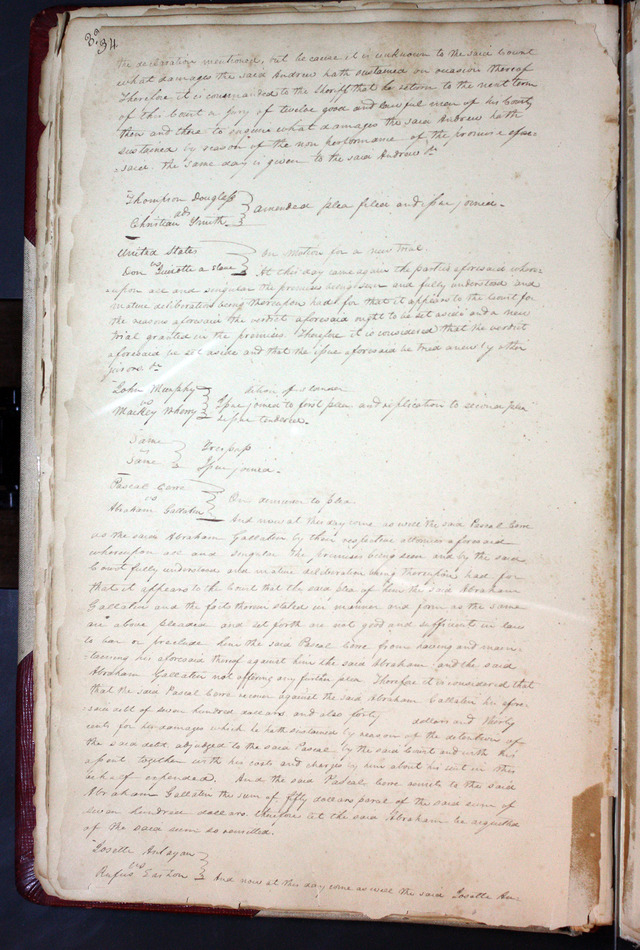 334
the declaration mentioned, but because it is unknown to the said Court
what damages the said Andrew hath sustained on occasion thereof
Therefore it is commanded to the Sheriff that he return to the next term
of this Court a jury of twelve good and lawful men of his County
then and there to enquire what damages the said Andrew hath
sustained by reason of the non performance of the promise afore-
-said. the same day is given to the said Andrew &c
Thompson Douglass
ads
Christian Smith
amended plea filed and issue joined.
United States
vs
Don Quixotte a slave
on motion for a new trial.
At this day came again the parties aforesaid where-
-upon all and singular the premises being seen and fully understood and
mature deliberation being thereupon had for that it appears to the Court for
the reasons aforesaid the verdict aforesaid ought to be set aside and a new
trial granted in the premises. Therefore it is considered that the verdict
aforesaid be set aside and that the issue aforesaid be tried anew by other
jurors &c
John Murphy
vs
Mackey Wherry
Action of slander
Issue joined to first plea and replication to second plea
issue tendered.
Same
vs
Same
Trespass
Issue joined.
Pascal Cerre
vs
Abraham Gallatin
On demurrer to plea
And now at this day come as well the said Pascal Cerre
as the said Abraham Gallatin by their respective attornies aforesaid
whereupon all and singular the premises being seen and by the said
Court fully understood and mature deliberation being thereupon had for
that it appears to the Court that the said plea of him the said Abraham
Gallatin and the facts therein stated in manner and form as the same
are above pleaded and set forth are not good and sufficient in law
to bar or preclude him the said Pascal Cerre from having and main-
-taining his aforesaid thereof against him the said Abraham and the said
Abraham Gallatin not offering any further plea Therefore it is considered that
that the said Pascal Cerre recover against the said Abraham Gallatin his afore-
-said debt of seven hundred dollars and also forty dollars and thirty
cents for his damages which he hath sustained by reason of the detention of
the said debt adjudged to the said Pascal by the said Court and with his
assent together with his costs and charges by him about his suit in this
behalf expended. And the said Pascal Cerre remits to the said
Abraham Gallatin the sum of fifty dollars parcel of the said sum of
seven hundred dollars. therefore let the said Abraham be acquitted
of the said sum so remitted.
Losette
vs
Rufus Easton
And now at this day come as well the said Losette